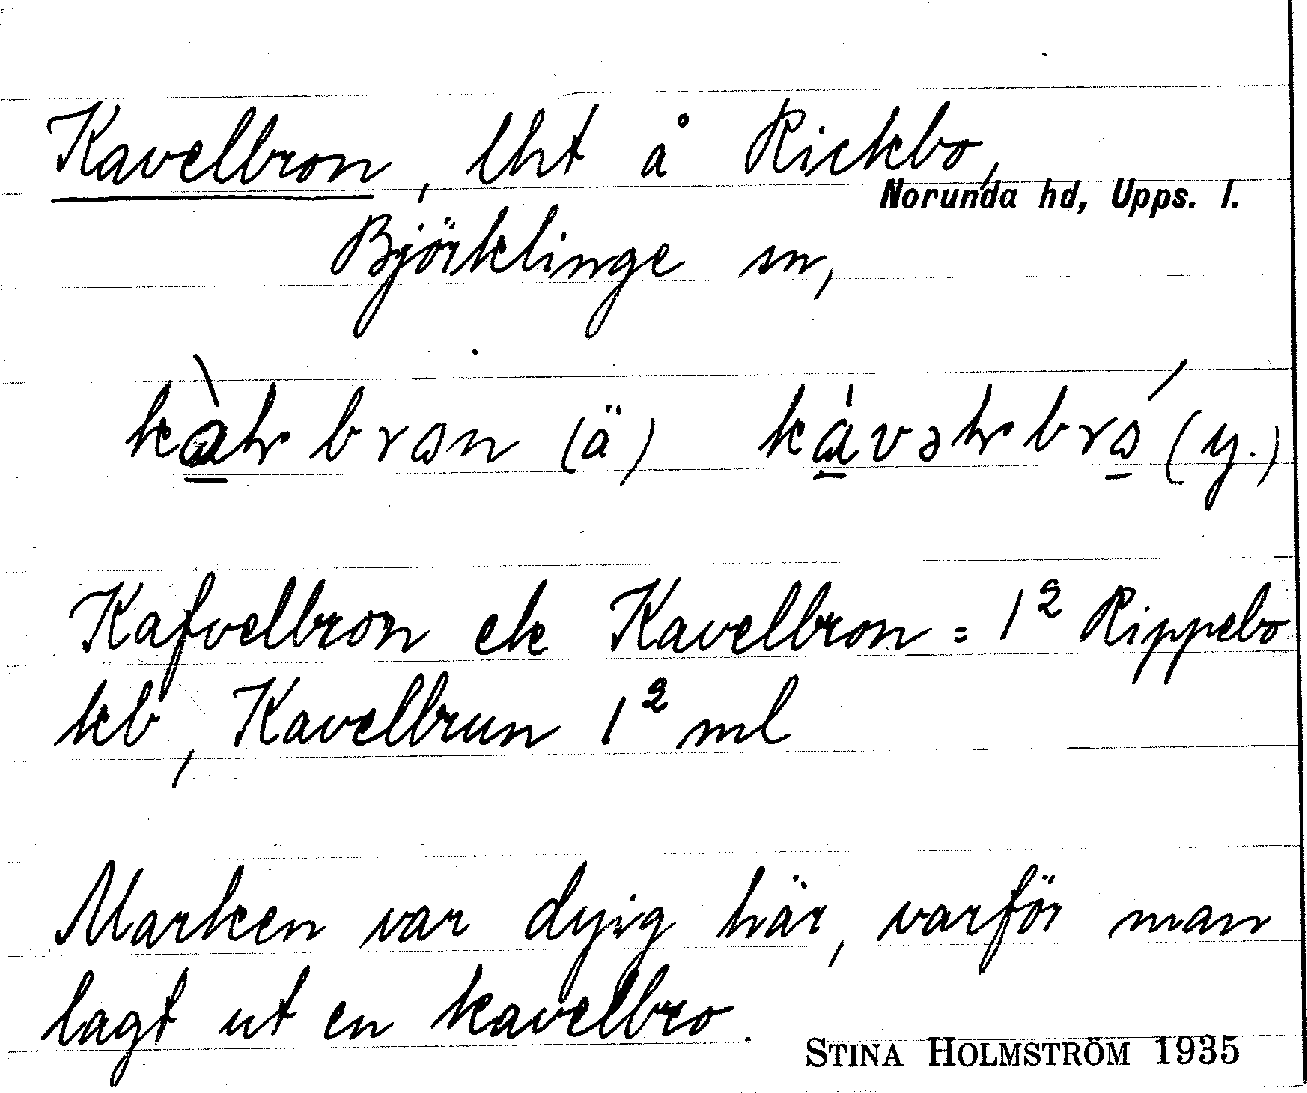 Kavelbron, lht å Rickbo,
Norunda hd, Upps. l.
Björklinge sn,
(ä) (y.)
Kafvelbron ek Kavelbron = 1² Rippebo
kb, Kavelbrun 1² ml
Marken var dyig här, varför man
lagt ut en kavelbro.
STINA HOLMSTRÖM 1935